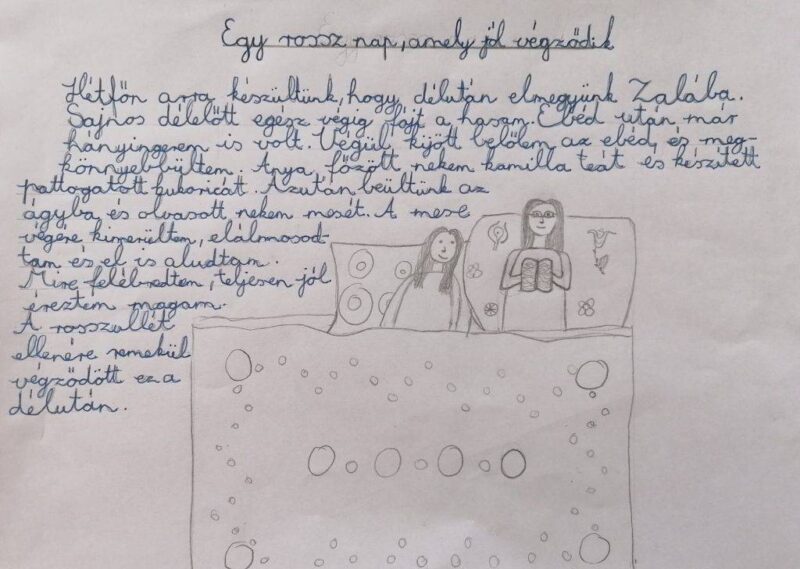 Egy rossz nap, amely jól végződik
Hétfőn arra készültünk, hogy, délután elmegyünk Zalába.
Sajnos délelőtt egész végig fájt a hasam. Ebéd után már
hányingerem is volt. Végül kijött belőlem az ebéd, és meg-
könnyebbültem. Anya főzött nekem kamilla teát és készített
pattogatott kukoricát. Azután beültünk az
ágyba és olvasott nekem mesét. A mese
végére kimerültem, elálmosod-
tam és el is aludtam.
Mire felébredtem, teljesen jól
éreztem magam.
A rosszullét
ellenére remekül
végződött ez a
délután.